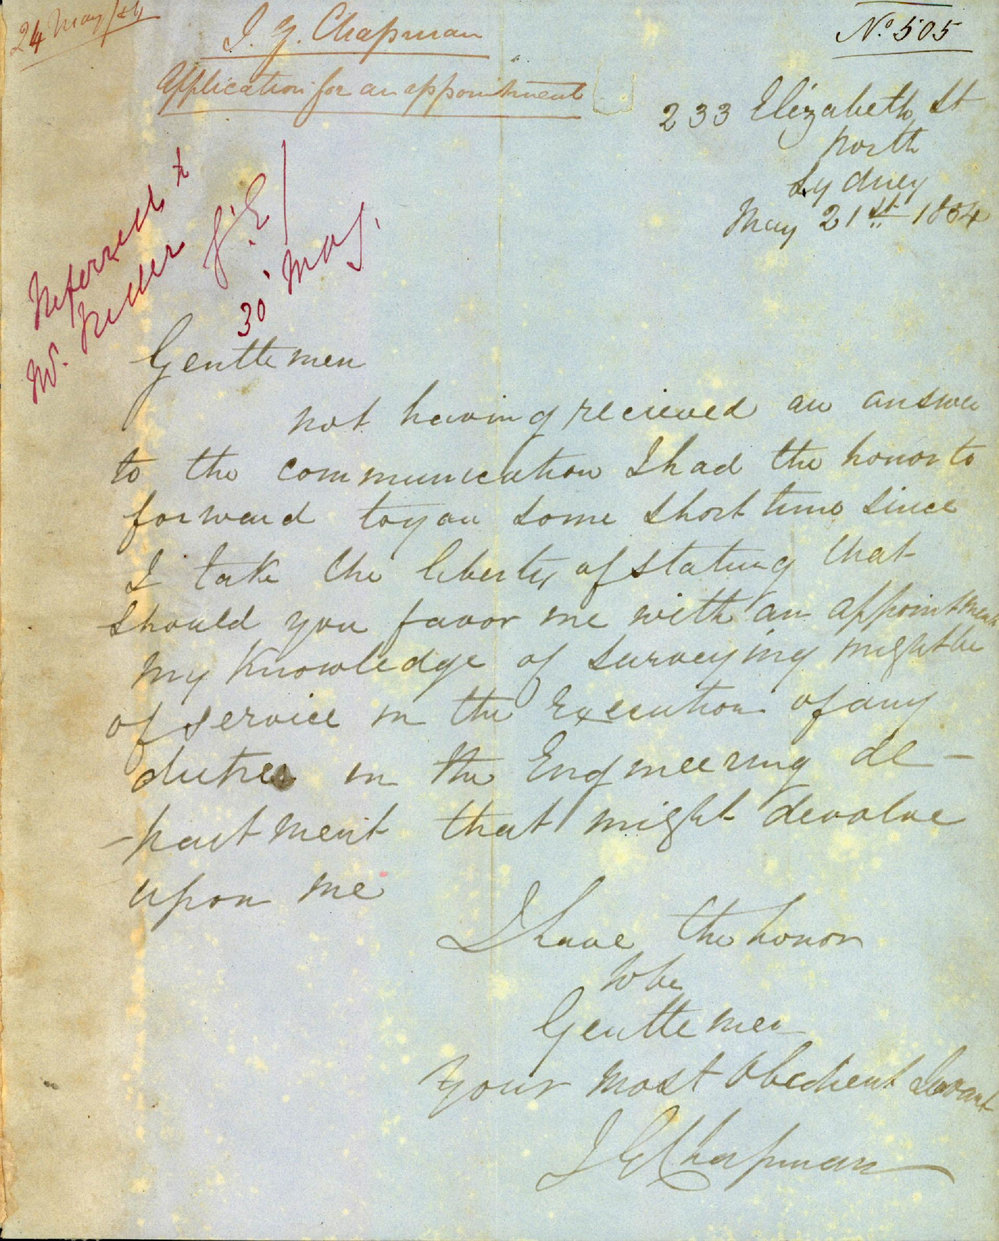 24 May/54
J. G. Chapman
Application for an appointment
No. 505
233 Elizabeth St
North
Sydney
May 21st 1854
Referred to
30 May.
Gentlemen
not having recieved an answer
to the communication I had the honor to
forward to you some short time since
I take the liberty of stating that
should you favor me with an appointment
my Knowledge of surveying might be
of service in the Execution of any
duties in the Engineering de-
-partment that might devolve
upon me
I have the honor
to be
Gentlemen
Your most Obedient Servant
J G Chapman